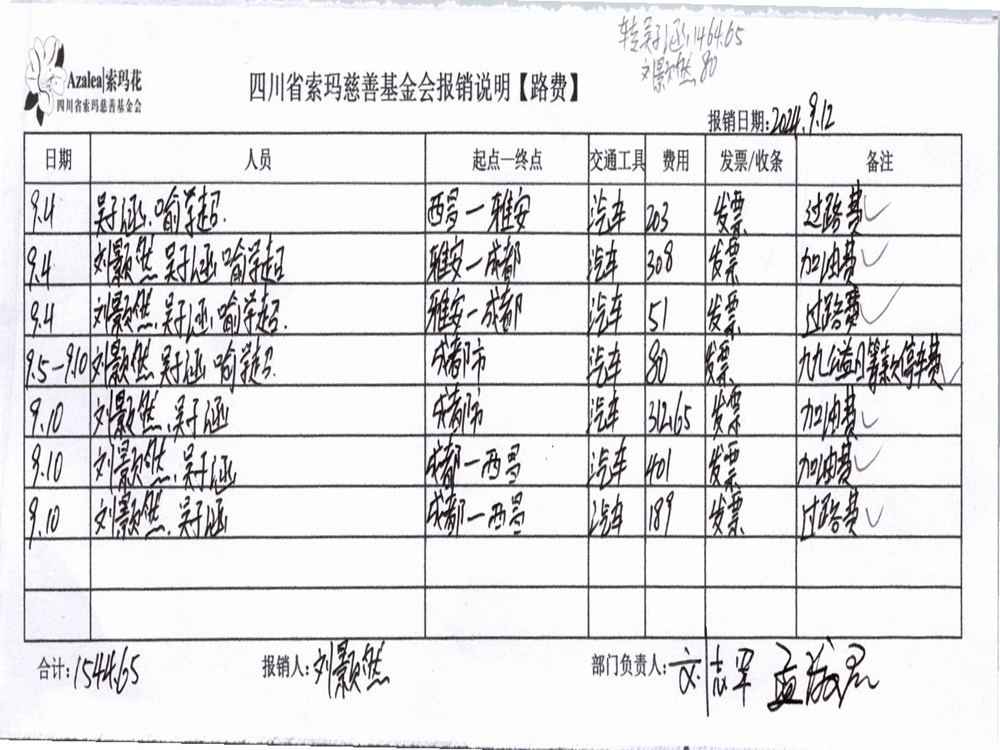 转吴于涵:1464.65
刘颢然 80
Azalea|索玛花
四川省索玛慈善基金会
四川省索玛慈善基金会报销说明【路费】
报销日期:2024.9.12
日期 人员 起点—终点 交通工具 费用 发票/收条 备注
9.4 吴于涵.喻学超. 西昌—雅安 汽车 203 发票 过路费✓
9.4 刘颢然 吴于涵 喻学超 雅安—成都 汽车 308 发票 加油费✓
9.4 刘颢然.吴于涵.喻学超. 雅安—成都 汽车 51 发票 过路费✓
9.5-9.10 刘颢然 吴于涵 喻学超. 成都市 汽车 80 发票 九九公益日筹款停车费✓
9.10 刘颢然.吴于涵 成都市 汽车 312.65 发票 加油费✓
9.10 刘颢然.吴于涵 成都—西昌 汽车 401 发票 加油费✓
9.10 刘颢然.吴于涵 成都—西昌 汽车 189 发票 过路费✓
合计:1544.65 报销人:刘颢然 部门负责人: